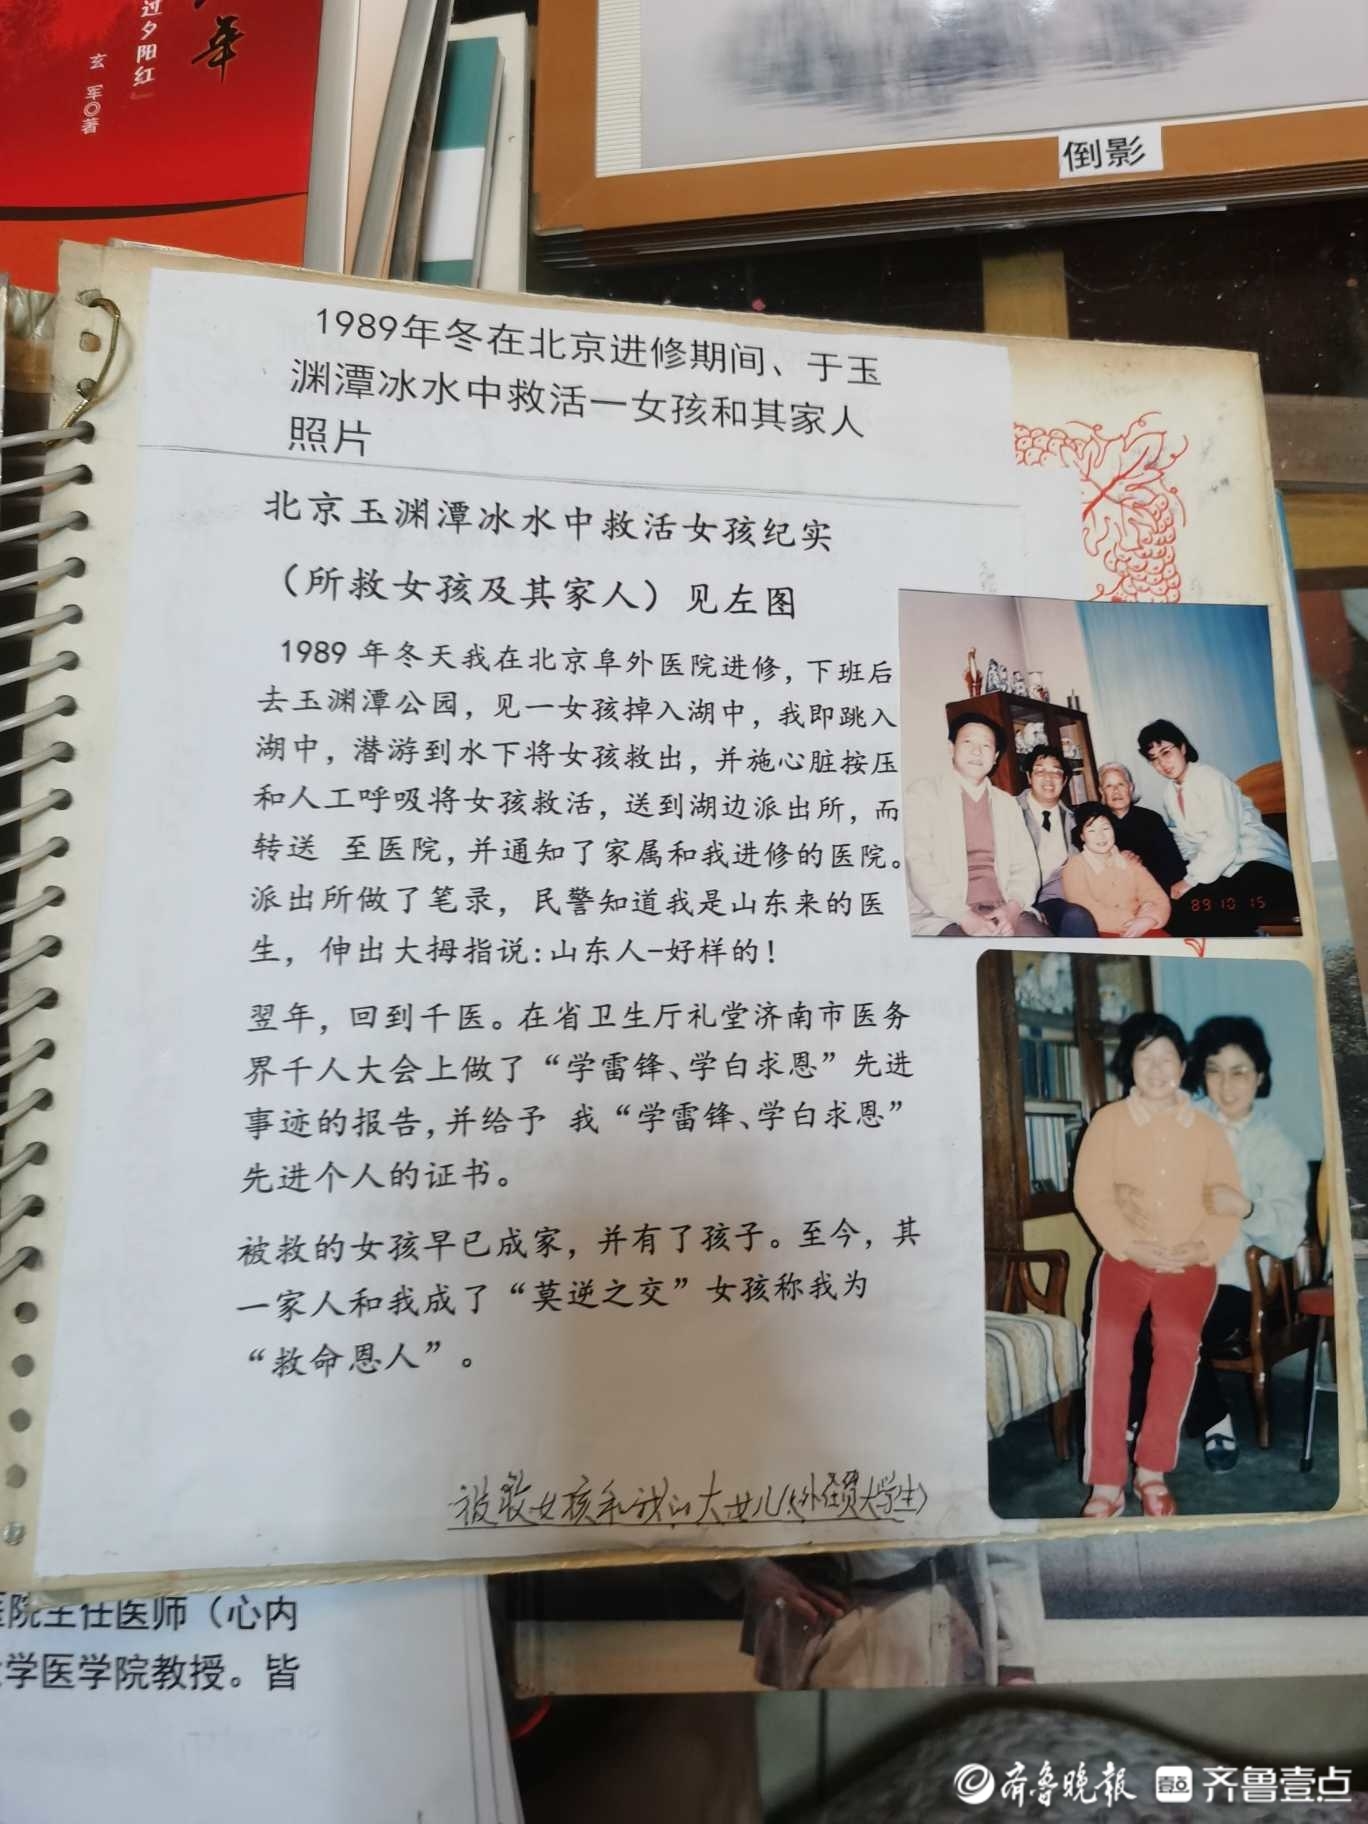 年
过夕阳红』
玄 军◎著
倒影
1989年冬在北京进修期间、于玉
渊潭冰水中救活一女孩和其家人
照片
北京玉渊潭冰水中救活女孩纪实
（所救女孩及其家人）见左图
1989 年冬天我在北京阜外医院进修，下班后
去玉渊潭公园，见一女孩掉入湖中，我即跳入
湖中，潜游到水下将女孩救出，并施心脏按压
和人工呼吸将女孩救活，送到湖边派出所，而
转送 至医院，并通知了家属和我进修的医院。
派出所做了笔录，民警知道我是山东来的医
生，伸出大拇指说:山东人-好样的!
89 10 15
翌年，回到千医。在省卫生厅礼堂济南市医务
界千人大会上做了“学雷锋、学白求恩”先进
事迹的报告，并给予 我“学雷锋、学白求恩”
先进个人的证书。
被救的女孩早已成家，并有了孩子。至今，其
一家人和我成了“莫逆之交”女孩称我为
“救命恩人”。
被救女孩和我的大女儿(外经贸大学生)
医院主任医师（心内
学医学院教授。皆
齐鲁晚报 壹点 齐鲁壹点